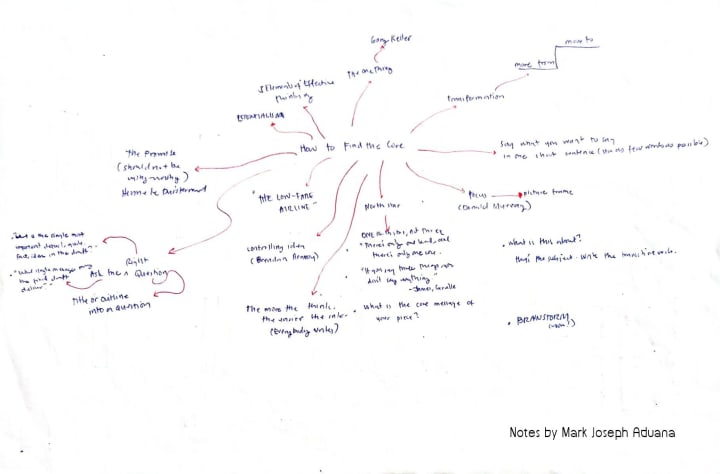 Gary Keller
The One Thing
5 Elements of Effective
Thinking
ESSENTIALISM
move to
move from
transformation
How to Find the Core
Say what you want to say
in one short sentence (use as few words as possible)
The Promise
(should not be
wishy-washy)
"THE LOW-FARE
AIRLINE"
North Star
focus
picture frame
(Donald Murray)
One
"There's only one lead, and
there's only one core.
"If you say three things, you
don't say anything."
- James Carville
what is the core message of
your piece?
controlling idea
The more the think,
the easier the ink.
(Everybody Writes)
Right
Ask the Question
Title or Outline
into a question
"What is the single most
important detail, quote,
fact, idea in the draft"
"What single message
the first draft
deliver"
what is this about?
that's the subject. Write the
BRAINSTORM
Notes by Mark Joseph Aduana